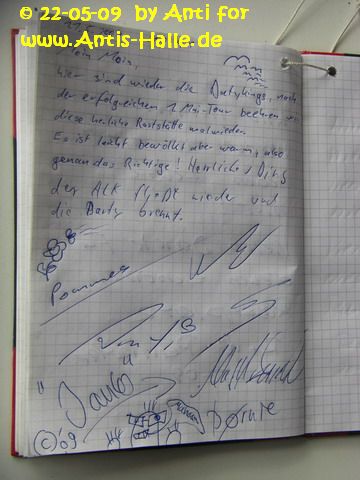 © 22-05-09 by Anti for
www.Antis-Halle.de
Moin,
hier sind wieder die Partykings, nach
der erfolgreichen 1 Mai-Tour beehren wir
diese herrliche Raststätte mal wieder.
Es ist leicht bewölkt aber warm, also
genau das Richtige! Herrliche
der Alk fließt wieder und
die Party brennt.
Pommes
© '09